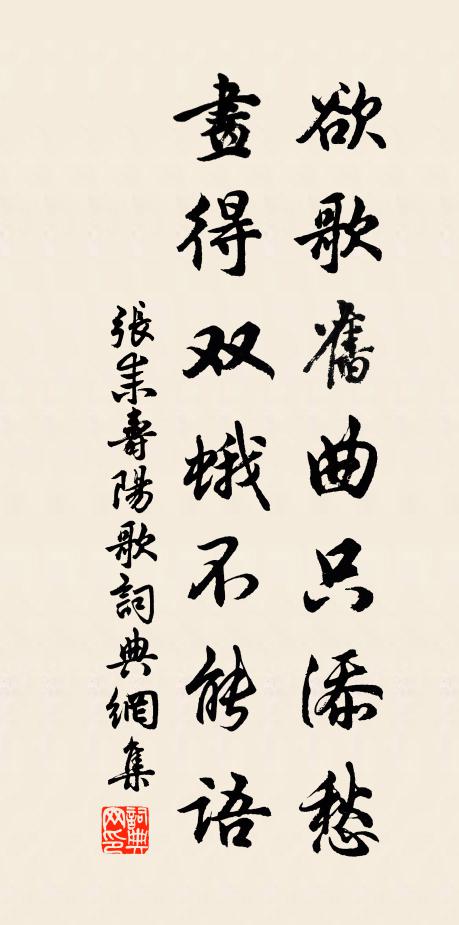 欲歌舊曲只添愁
畫得双蛾不能語
張耒壽陽歌詞典網集
詞典網印